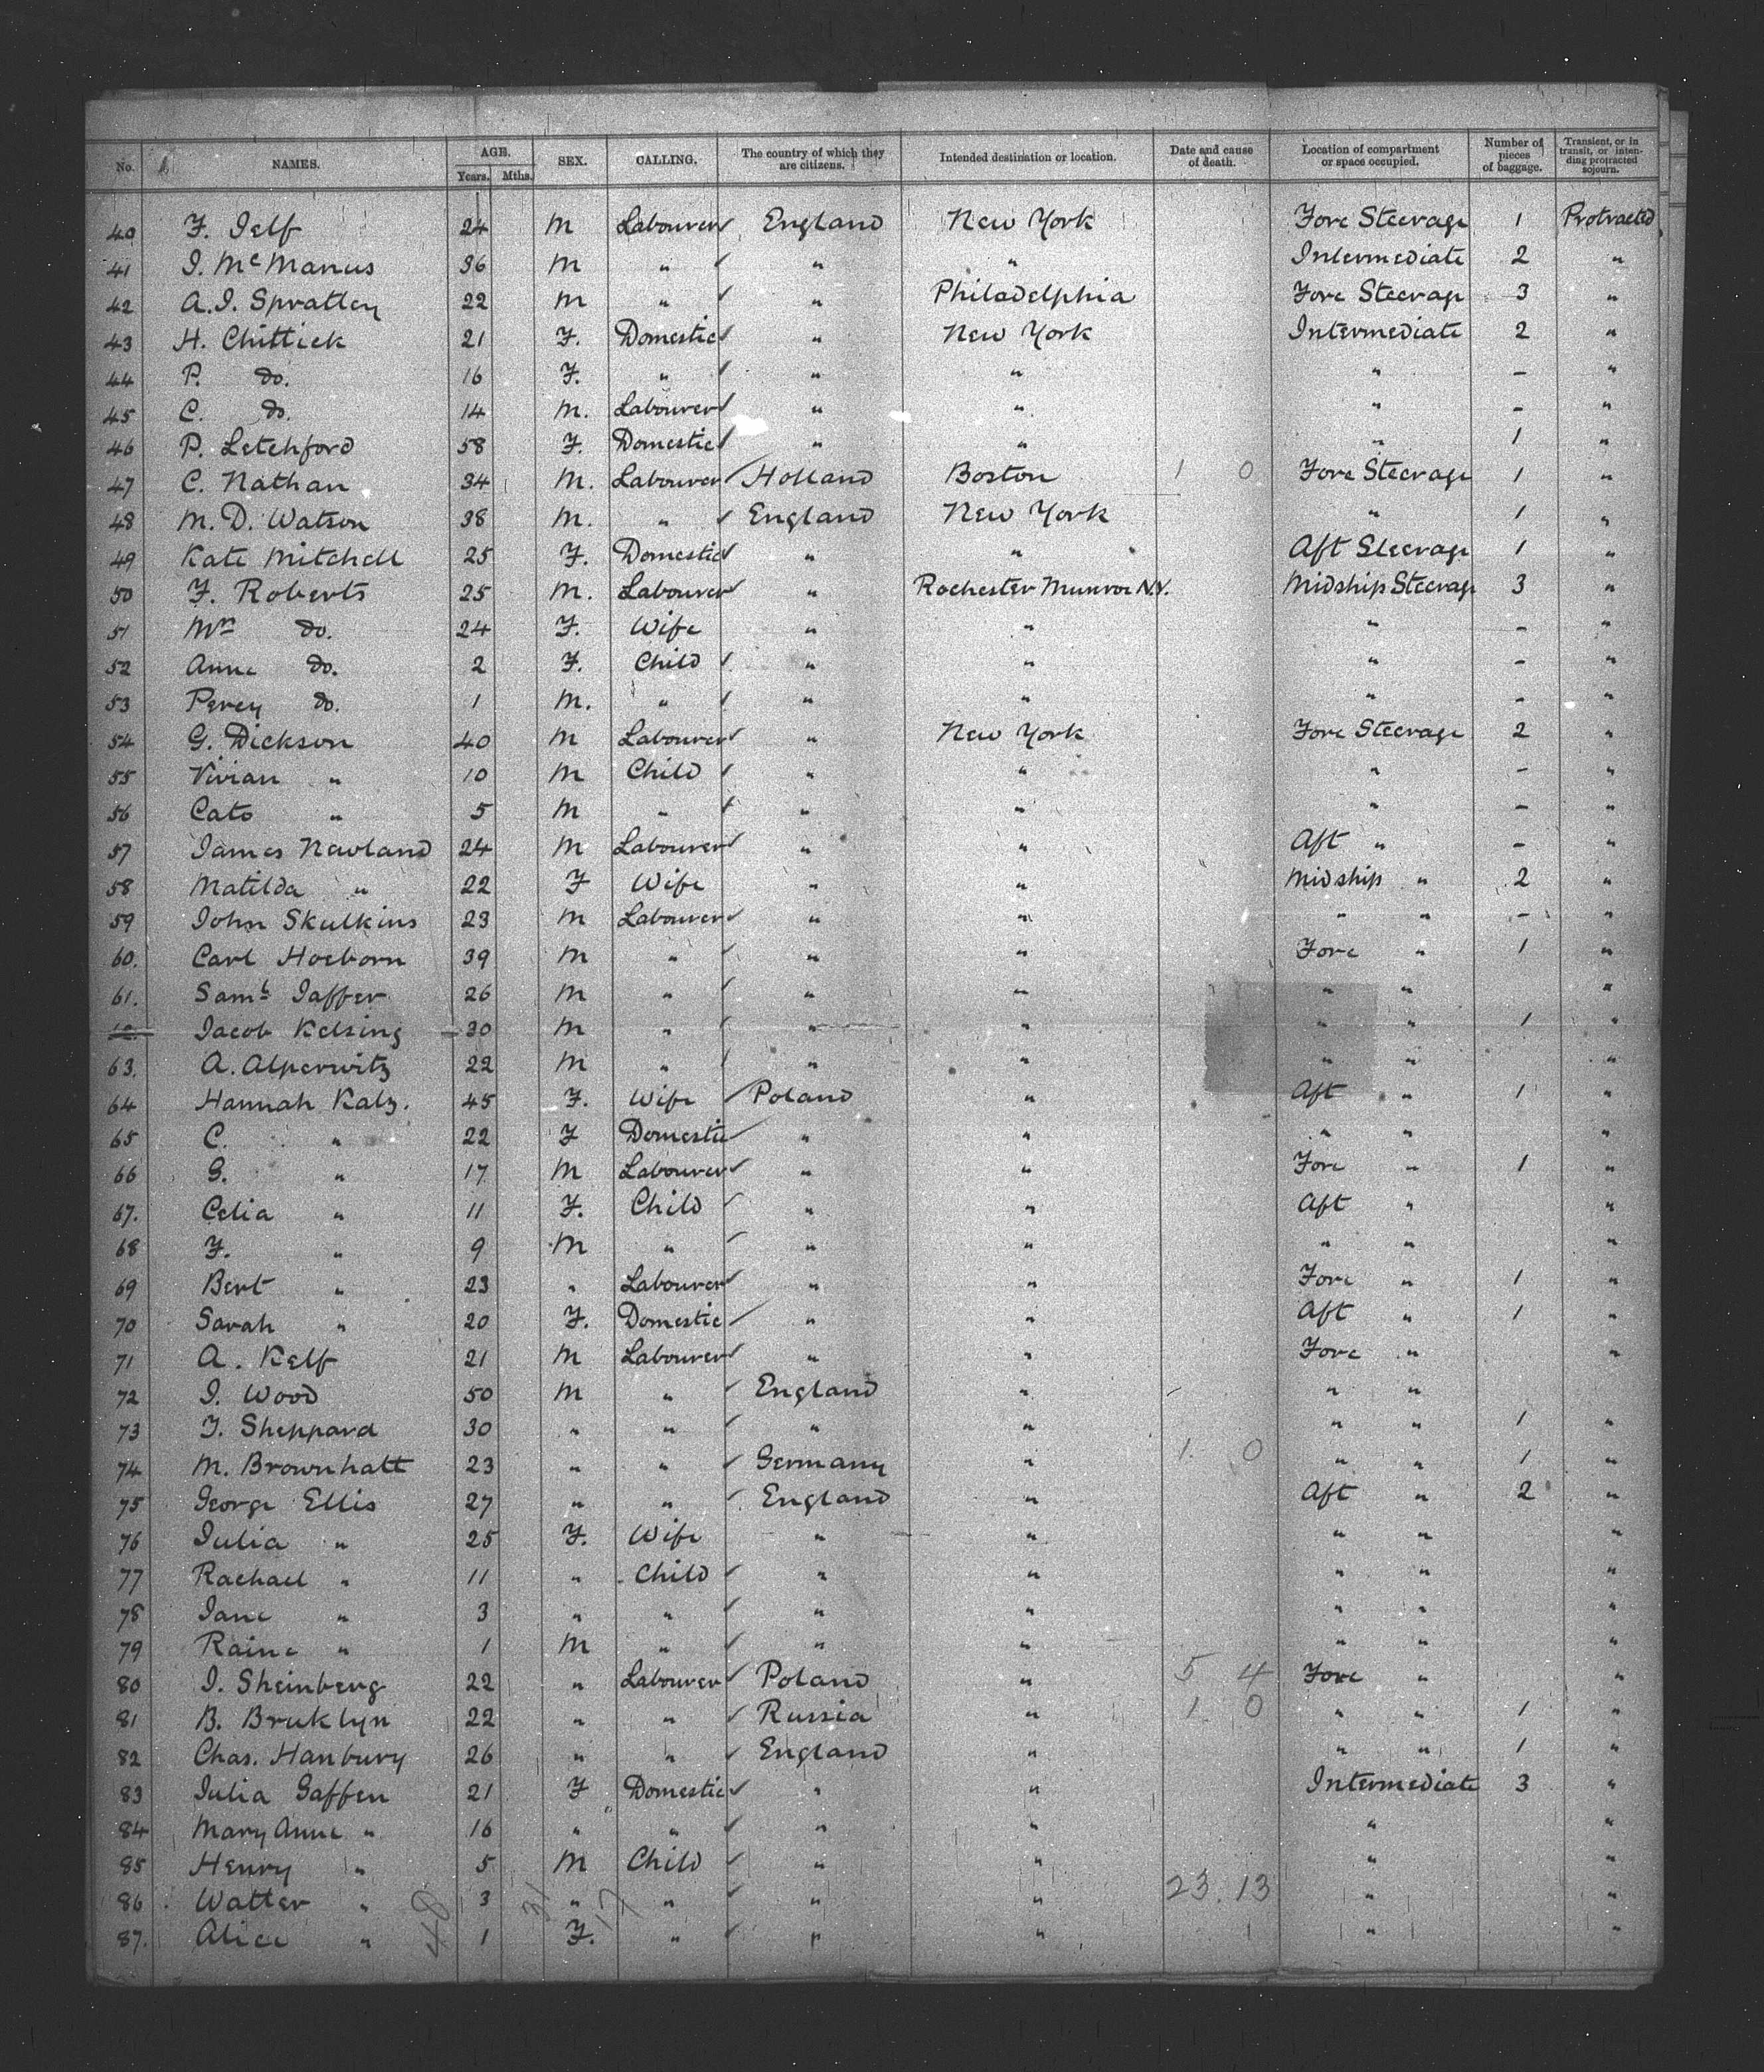 No. NAMES. AGE. Years. Mths. SEX. CALLING. The country of which they are citizens. Intended destination or location. Date and cause of death. Location of compartment or space occupied. Number of pieces of baggage. Transient, or in transit, or intending protracted sojourn.
40 F. Jelf 24 M Labourer England New York Fore Steerage 1 Protracted
41 J. McManus 36 M " " " Intermediate 2 "
42 A.J. Spratley 22 M " " Philadelphia Fore Steerage 3 "
43 H. Chittick 21 F. Domestic " New York Intermediate 2 "
44 P. do. 16 F. " " " " - "
45 C. do. 14 M. Labourer " " " - "
46 P. Letchford 58 F. Domestic " " " 1 "
47 C. Nathan 34 M. Labourer Holland Boston 1 0 Fore Steerage 1 "
48 M. D. Watson 38 M. " England New York " 1 "
49 Kate Mitchell 25 F. Domestic " " Aft Steerage 1 "
50 F. Roberts 25 M. Labourer " Rochester Munroe N.Y. Midship Steerage 3 "
51 Mrs do. 24 F. Wife " " " - "
52 Anne do. 2 F. Child " " " - "
53 Percy do. 1 M. " " " " - "
54 G. Dickson 40 M Labourer " New York Fore Steerage 2 "
55 Vivian " 10 M Child " " " - "
56 Cato " 5 M " " " " - "
57 James Newland 24 M Labourer " " Aft " - "
58 Matilda " 22 F Wife " " Midship " 2 "
59 John Skulkins 23 M Labourer " " " " - "
60. Carl Hoeborn 39 M " " " Fore " 1 "
61. Saml Jaffer 26 M " " " " " "
Jacob Kelsing 30 M " " " " " 1 "
63. A. Alperwitz 22 M " " " " " "
64 Hannah Katz. 45 F. Wife Poland " Aft " 1 "
65 C. " 22 F Domestic " " " " "
66 G. " 17 M Labourer " " Fore " 1 "
67. Celia " 11 F. Child " " Aft " "
68 F. " 9 M " " " " " "
69 Bert " 23 " Labourer " " Fore " 1 "
70 Sarah " 20 F. Domestic " " Aft " 1 "
71 A. Kelf 21 M Labourer " " Fore " "
72 J. Wood 50 M " England " " "
73 J. Sheppard 30 " " " " " " 1 "
74 M. Brownhatt 23 " " Germany " 1 0 " " 1 "
75 George Ellis 27 " " England " Aft " 2 "
76 Julia " 25 F. Wife " " " " "
77 Rachael " 11 " Child " " " " "
78 Jane " 3 " " " " " " "
79 Raine " 1 M " " " " " "
80 J. Sheinberg 22 " Labourer Poland " 5 4 Fore " "
81 B. Bruklyn 22 " " Russia " 1 0 " " 1 "
82 Chas. Hanbury 26 " " England " " " 1 "
83 Julia Gaffen 21 F Domestic " " Intermediate 3 "
84 Mary Anne " 16 " " " " " "
85 Henry " 5 M Child " " " "
86 Walter " 3 " " " " 23. 13 " "
87. Alice " 1 F. " " " " "
48 31 17